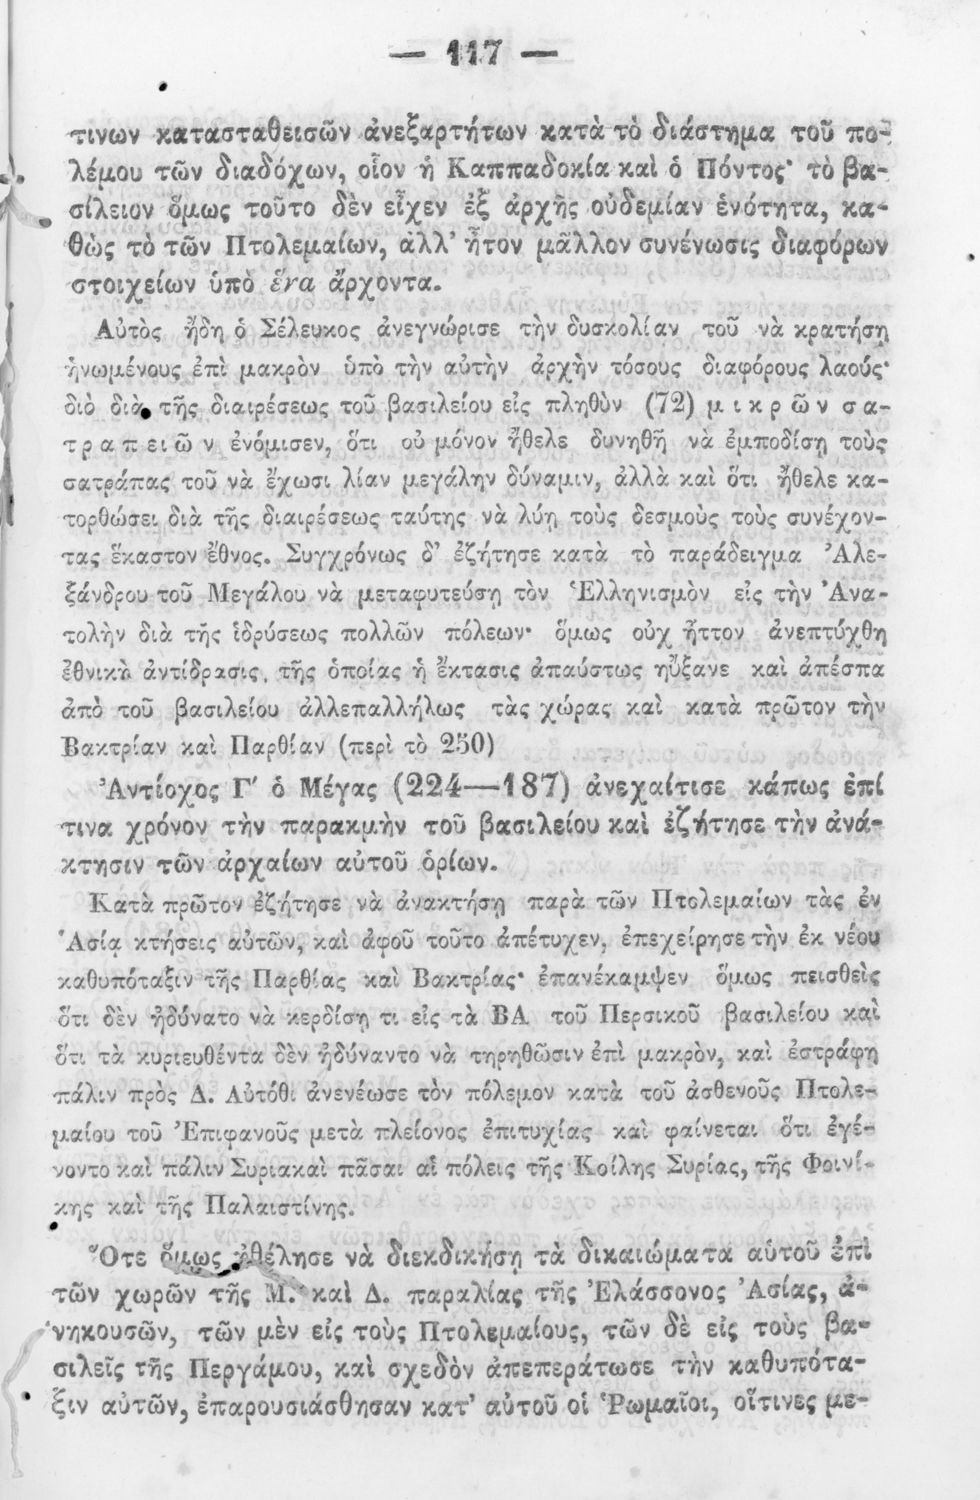 — 117 —
τινων κατασταθεισῶν ἀνεξαρτήτων κατὰ τὸ διάστημα τοῦ πο-
λέμου τῶν διαδόχων, οἷον ἡ Καππαδοκία καὶ ὁ Πόντος· τὸ βα-
σίλειον ὅμως τοῦτο δὲν εἶχεν ἐξ ἀρχῆς οὐδεμίαν ἑνότητα, κα-
θὼς τὸ τῶν Πτολεμαίων, ἀλλ' ἦτον μᾶλλον συνένωσις διαφόρων
στοιχείων ὑπὸ ἕνα ἄρχοντα.
Αὐτὸς ἤδη ὁ Σέλευκος ἀνεγνώρισε τὴν δυσκολίαν τοῦ νὰ κρατήσῃ
ἡνωμένους ἐπὶ μακρὸν ὑπὸ τὴν αὐτὴν ἀρχὴν τόσους διαφόρους λαούς·
διὸ διὰ τῆς διαιρέσεως τοῦ βασιλείου εἰς πληθὺν (72) μικρῶν σα-
τραπειῶν ἐνόμισεν, ὅτι οὐ μόνον ἤθελε δυνηθῆ νὰ ἐμποδίσῃ τοὺς
σατράπας τοῦ νὰ ἔχωσι λίαν μεγάλην δύναμιν, ἀλλὰ καὶ ὅτι ἤθελε κα-
τορθώσει διὰ τῆς διαιρέσεως ταύτης νὰ λύῃ τοὺς δεσμοὺς τοὺς συνέχον-
τας ἕκαστον ἔθνος. Συγχρόνως δ' ἐζήτησε κατὰ τὸ παράδειγμα Ἀλε-
ξάνδρου τοῦ Μεγάλου νὰ μεταφυτεύσῃ τὸν Ἑλληνισμὸν εἰς τὴν Ἀνα-
τολὴν διὰ τῆς ἱδρύσεως πολλῶν πόλεων· ὅμως οὐχ ἧττον ἀνεπτύχθη
ἐθνικὴ ἀντίδρασις, τῆς ὁποίας ἡ ἔκτασις ἀπαύστως ηὔξανε καὶ ἀπέσπα
ἀπὸ τοῦ βασιλείου ἀλλεπαλλήλως τὰς χώρας καὶ κατὰ πρῶτον τὴν
Βακτρίαν καὶ Παρθίαν (περὶ τὸ 250)
Ἀντίοχος Γ' ὁ Μέγας (224—187) ἀνεχαίτισε κάπως ἐπί
τινα χρόνον τὴν παρακμὴν τοῦ βασιλείου καὶ ἐζήτησε τὴν ἀνά-
κτησιν τῶν ἀρχαίων αὐτοῦ ὁρίων.
Κατὰ πρῶτον ἐζήτησε νὰ ἀνακτήσῃ παρὰ τῶν Πτολεμαίων τὰς ἐν
Ἀσίᾳ κτήσεις αὐτῶν, καὶ ἀφοῦ τοῦτο ἀπέτυχεν, ἐπεχείρησε τὴν ἐκ νέου
καθυπόταξιν τῆς Παρθίας καὶ Βακτρίας· ἐπανέκαμψεν ὅμως πεισθεὶς
ὅτι δὲν ἠδύνατο νὰ κερδίσῃ τι εἰς τὰ ΒΑ τοῦ Περσικοῦ βασιλείου καὶ
ὅτι τὰ κυριευθέντα δὲν ἠδύναντο νὰ τηρηθῶσιν ἐπὶ μακρὸν, καὶ ἐστράφη
πάλιν πρὸς Δ. Αὐτόθι ἀνενέωσε τὸν πόλεμον κατὰ τοῦ ἀσθενοῦς Πτολε-
μαίου τοῦ Ἐπιφανοῦς μετὰ πλείονος ἐπιτυχίας καὶ φαίνεται ὅτι ἐγέ-
νοντο καὶ πάλιν Συριακαὶ πᾶσαι αἱ πόλεις τῆς Κοίλης Συρίας, τῆς Φοινί-
κης καὶ τῆς Παλαιστίνης.
Ὅτε ὅμως ἠθέλησε νὰ διεκδικήσῃ τὰ δικαιώματα αὑτοῦ ἐπὶ
τῶν χωρῶν τῆς Μ. καὶ Δ. παραλίας τῆς Ἐλάσσονος Ἀσίας, ἀ-
νηκουσῶν, τῶν μὲν εἰς τοὺς Πτολεμαίους, τῶν δὲ εἰς τοὺς βα-
σιλεῖς τῆς Περγάμου, καὶ σχεδὸν ἀπεπεράτωσε τὴν καθυπότα-
ξιν αὐτῶν, ἐπαρουσιάσθησαν κατ' αὐτοῦ οἱ Ῥωμαῖοι, οἵτινες με-